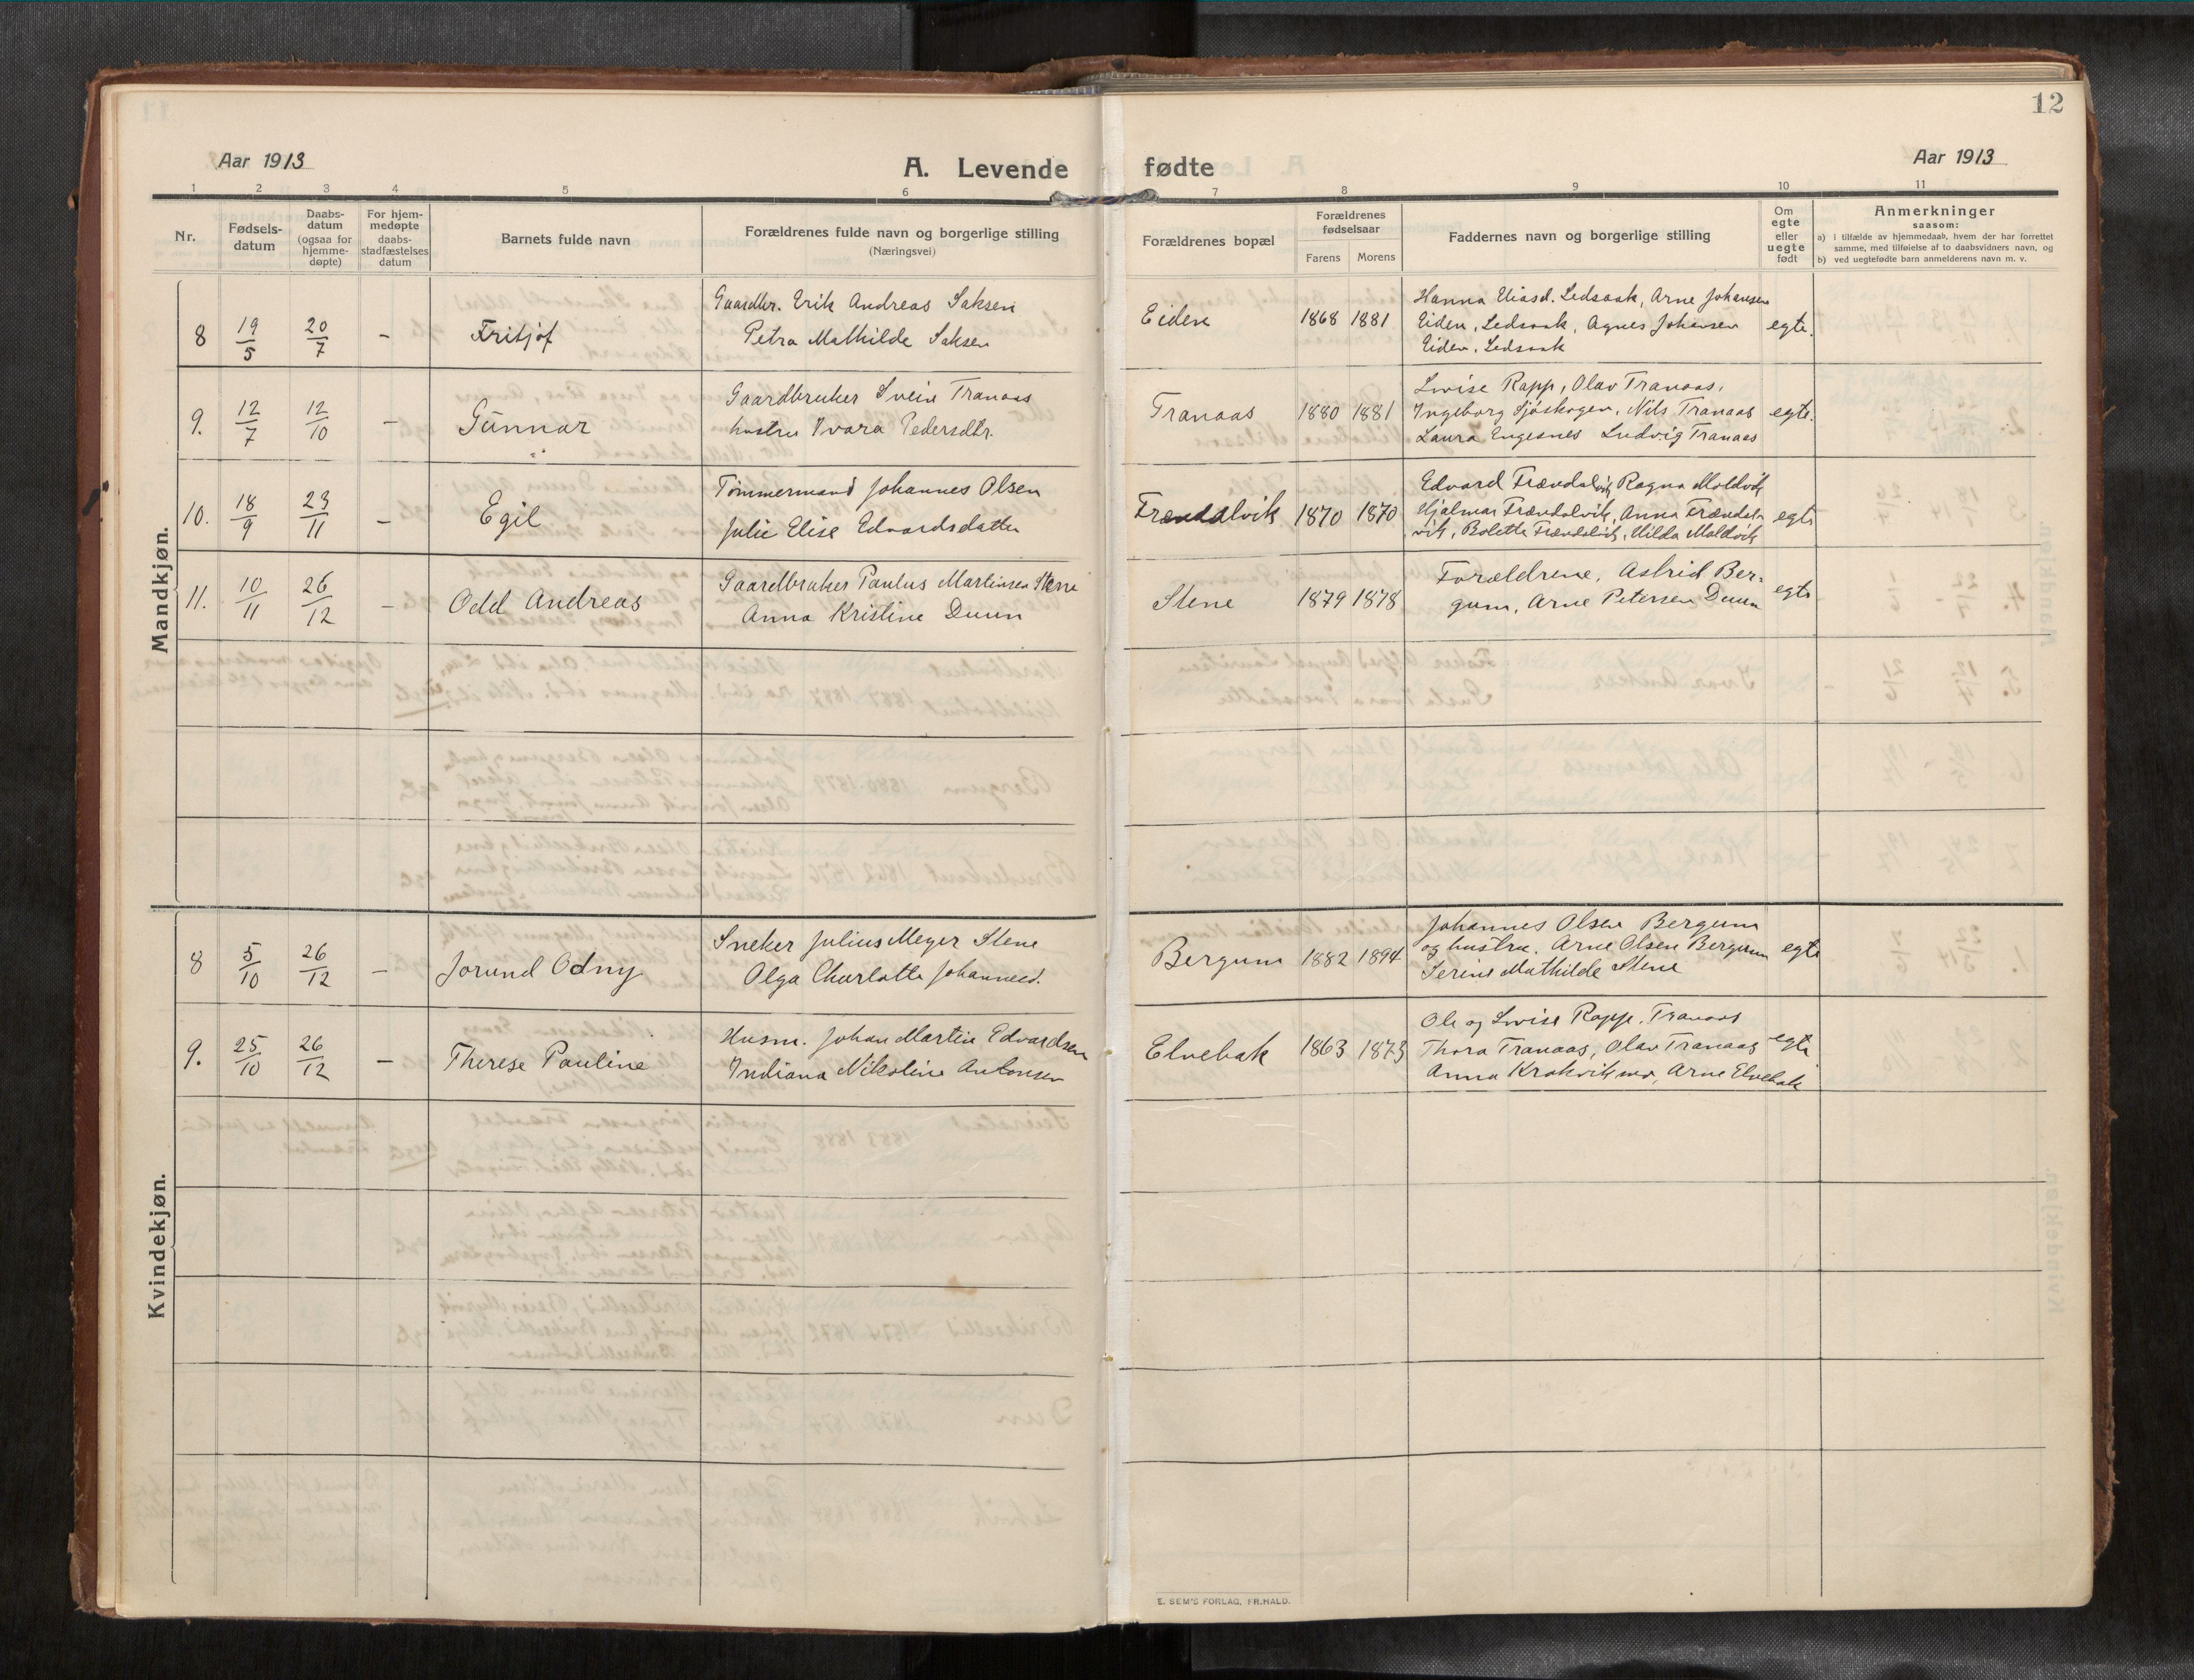 12
Aar 1913
A. Levende fødte
Aar 1913
1 2 3 4 5 6 7 8 9 10 11
Nr.
Fødsels-
datum
Daabs-
datum
(ogsaa for
hjemme-
døpte)
For hjem-
medøpte
daabs-
stadfæstelses
datum
Barnets fulde navn
Forældrenes fulde navn og borgerlige stilling
(Næringsvei)
Forældrenes bopæl
Forældrenes
fødselsaar
Farens Morens
Faddernes navn og borgerlige stilling
Om
egte
eller
uegte
født
Anmerkninger
saasom:
a) i tilfælde av hjemmedaab, hvem der har forrettet
samme, med tilføielse af to daabsvidners navn, og
b) ved uegtefødte barn anmelderens navn m. v.
Mandkjøn.
8 19/5 20/7 - Fritjof
Gaardbr. Erik Andreas Saksen
Petra Mathilde Saksen
Eiden 1868 1881
Hanna Eliasd. Ledsaak, Arne Johansen
Eiden, Ledsaak, Agnes Johansen
Eiden, Ledsaak
egte.
9. 12/7 12/10 - Gunnar
Gaardbruker Svein Tranaas
hustru Ivara Pedersdtr.
Tranaas 1880 1881
Lovise Rapp, Olav Tranaas,
Ingeborg Sjøskogen, Nils Tranaas
Laura Engesnes Ludvig Tranaas
egte.
10. 18/9 23/11 - Egil
Tømmermand Johannes Olsen
Julie Elise Edvardsdatter
Frændalvik 1870 1870
Edvard Frændalvik, Ragna Moldvik
Hjalmar Frændalvik, Anna Frændal
vik, Bolette Frændalvik, Hilda Moldvik
egte
11. 10/11 26/12 - Odd Andreas
Gaardbruker Paulus Martinsen Stene
Anna Kristine Duun
Stene 1879 1878
Forældrene, Astrid Ber-
gum, Arne Petersen Duun
egte
Kvindekjøn.
8 5/10 26/12 - Jorund Odny
Sneker Julius Meyer Stene
Olga Charlotte Johannesd.
Bergum 1882 1894
Johannes Olsen Bergum
og hustru, Arne Olsen Bergum
Serine Mathilde Stene
egte
9. 25/10 26/12 - Therese Pauline
Husm. Johan Martin Edvardsen
Indiana Nikoline Antonsen
Elvebak 1863 1873
Ole og Lovise Rapp, Tranaas
Thora Tranaas, Olav Tranaas
Anna Krokvik, Arne Elvebak
egte
E. SEM'S FORLAG, FR.HALD.